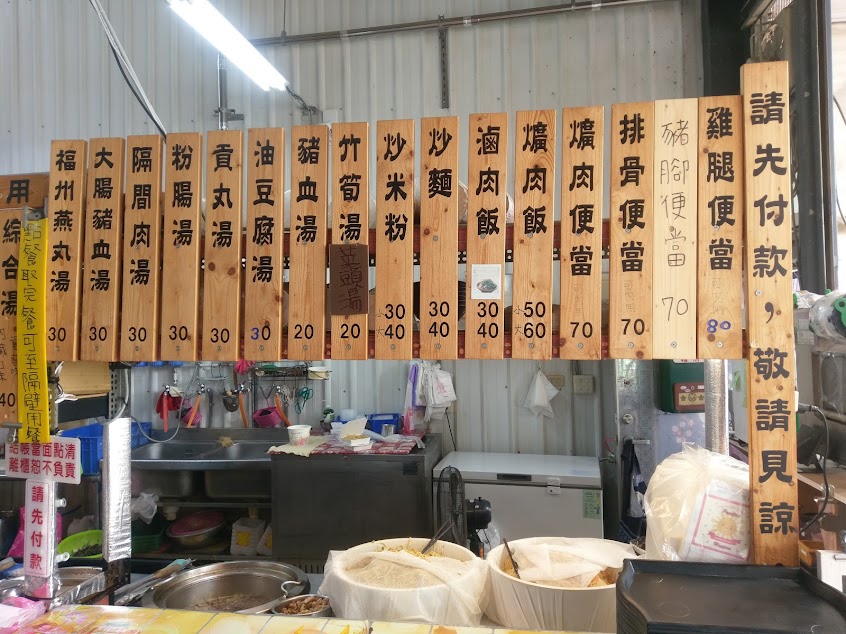 請先付款，敬請見諒
雞腿便當 80
豬腳便當 70
排骨便當 70
爌肉便當 70
爌肉飯 小50 大60
滷肉飯 30 40
炒麵 30 40
炒米粉 小30 大40
竹筍湯 20
豬血湯 20
油豆腐湯 30
貢丸湯 30
粉腸湯 30
隔間肉湯 30
大腸豬血湯 30
福州燕丸湯 30
綜合湯 40
用
點餐取完餐可至隔壁用餐
結帳當面點清
離櫃恕不負責
請先付款